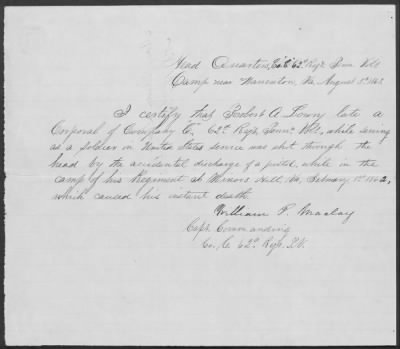 Head Quarters, Co "E" 62d Regt Penn Vols
Camp near Warrenton, Va, August 5th 1863
I certify that Robert A. Lowry late a
Corporal of Company "E" 62d Regt, Penna Vols, while serving
as a soldier in United States service was shot through the
head by the accidental discharge of a pistol, while in the
camp of his Regiment at Minors Hill, Va, February 1st 1862,
which caused his instant death.
William P. Maclay
Capt. Commanding
Co. 62d Regt. P.V.